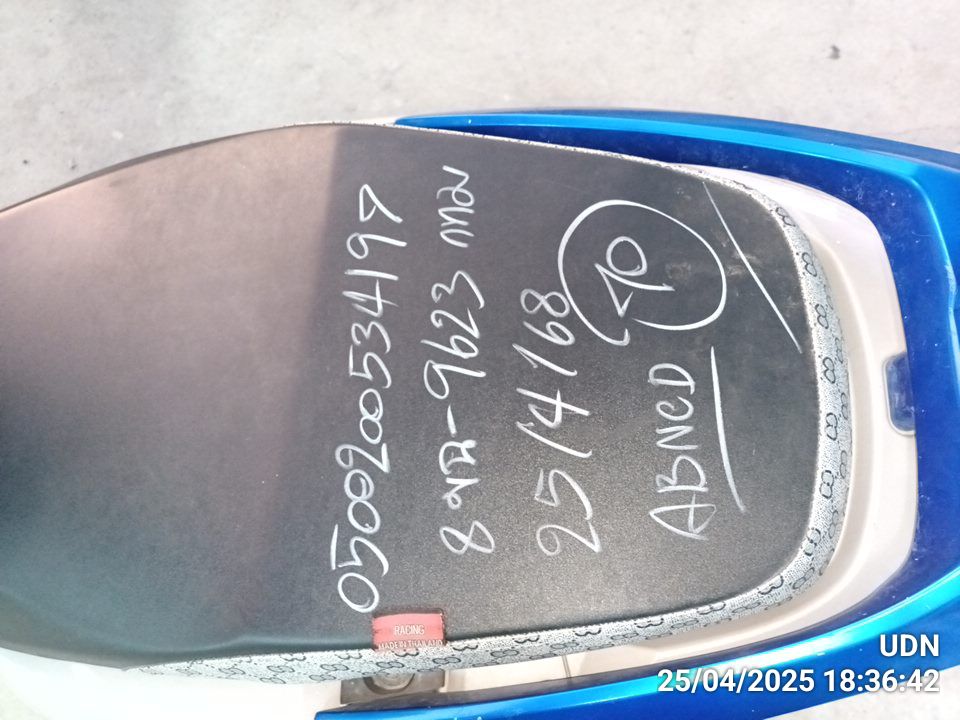 0500200534197
8ขฉ-9623 กทม
25/4/68
70
ABNCD
RACING
MADE IN THAILAND
UDN
25/04/2025 18:36:42